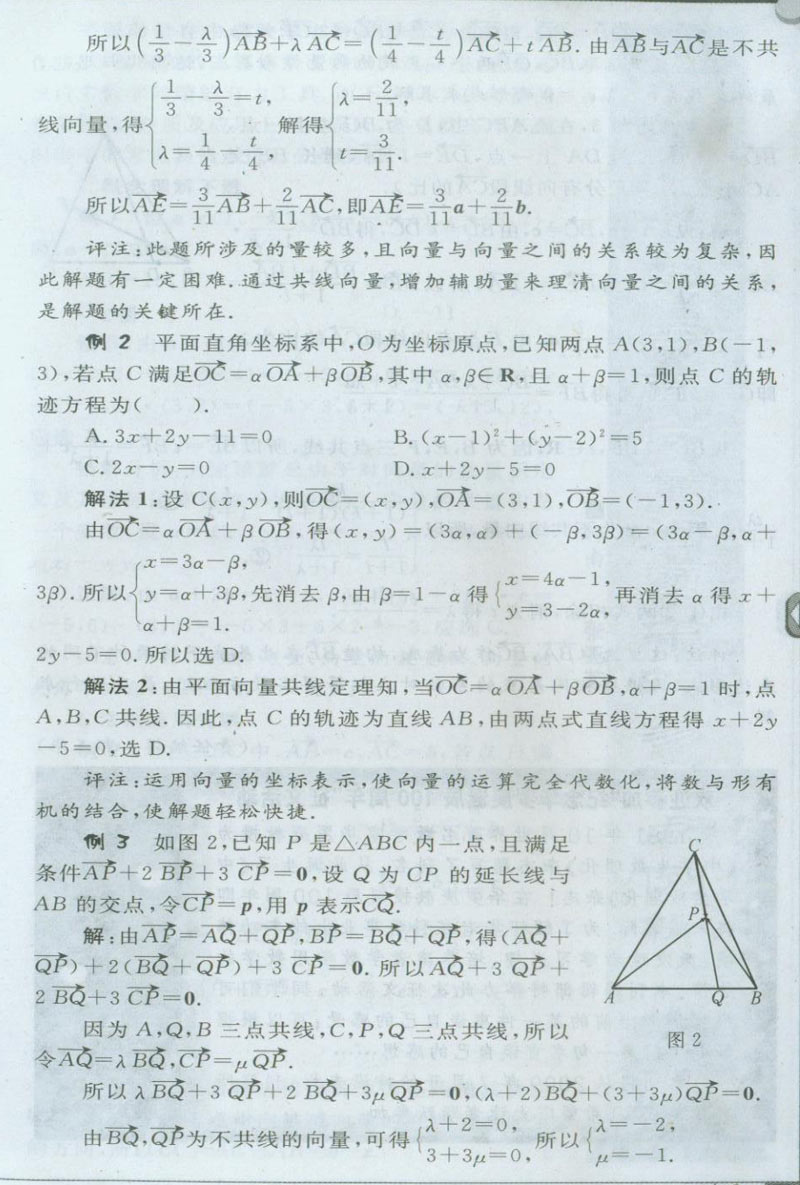 所以(1/3−λ/3)AB→+λAC→=(1/4−t/4)AC→+tAB→.由AB→与AC→是不共
线向量,得{1/3−λ/3=t, λ=1/4−t/4, 解得{λ=2/11, t=3/11.
所以AE→=3/11AB→+2/11AC→,即AE→=3/11a+2/11b.
评注:此题所涉及的量较多,且向量与向量之间的关系较为复杂,因
此解题有一定困难.通过共线向量,增加辅助量来理清向量之间的关系,
是解题的关键所在.
例2 平面直角坐标系中,O为坐标原点,已知两点A(3,1),B(−1,
3),若点C满足OC→=αOA→+βOB→,其中α,β∈R,且α+β=1,则点C的轨
迹方程为( ).
A.3x+2y−11=0 B.(x−1)²+(y−2)²=5
C.2x−y=0 D.x+2y−5=0
解法1:设C(x,y),则OC→=(x,y),OA→=(3,1),OB→=(−1,3).
由OC→=αOA→+βOB→,得(x,y)=(3α,α)+(−β,3β)=(3α−β,α+
3β).所以{x=3α−β, y=α+3β, α+β=1. 先消去β,由β=1−α得{x=4α−1, y=3−2α, 再消去α得x+
2y−5=0.所以选D.
解法2:由平面向量共线定理知,当OC→=αOA→+βOB→,α+β=1时,点
A,B,C共线.因此,点C的轨迹为直线AB,由两点式直线方程得x+2y
−5=0,选D.
评注:运用向量的坐标表示,使向量的运算完全代数化,将数与形有
机的结合,使解题轻松快捷.
例3 如图2,已知P是△ABC内一点,且满足
条件AP→+2BP→+3CP→=0,设Q为CP的延长线与
AB的交点,令CP→=p,用p表示CQ→.
解:由AP→=AQ→+QP→,BP→=BQ→+QP→,得(AQ→+
QP→)+2(BQ→+QP→)+3CP→=0.所以AQ→+3QP→+
2BQ→+3CP→=0.
C
P
A Q B
图2
因为A,Q,B三点共线,C,P,Q三点共线,所以
令AQ→=λBQ→,CP→=μQP→.
所以λBQ→+3QP→+2BQ→+3μQP→=0,(λ+2)BQ→+(3+3μ)QP→=0.
由BQ→,QP→为不共线的向量,可得{λ+2=0, 3+3μ=0, 所以{λ=−2, μ=−1.